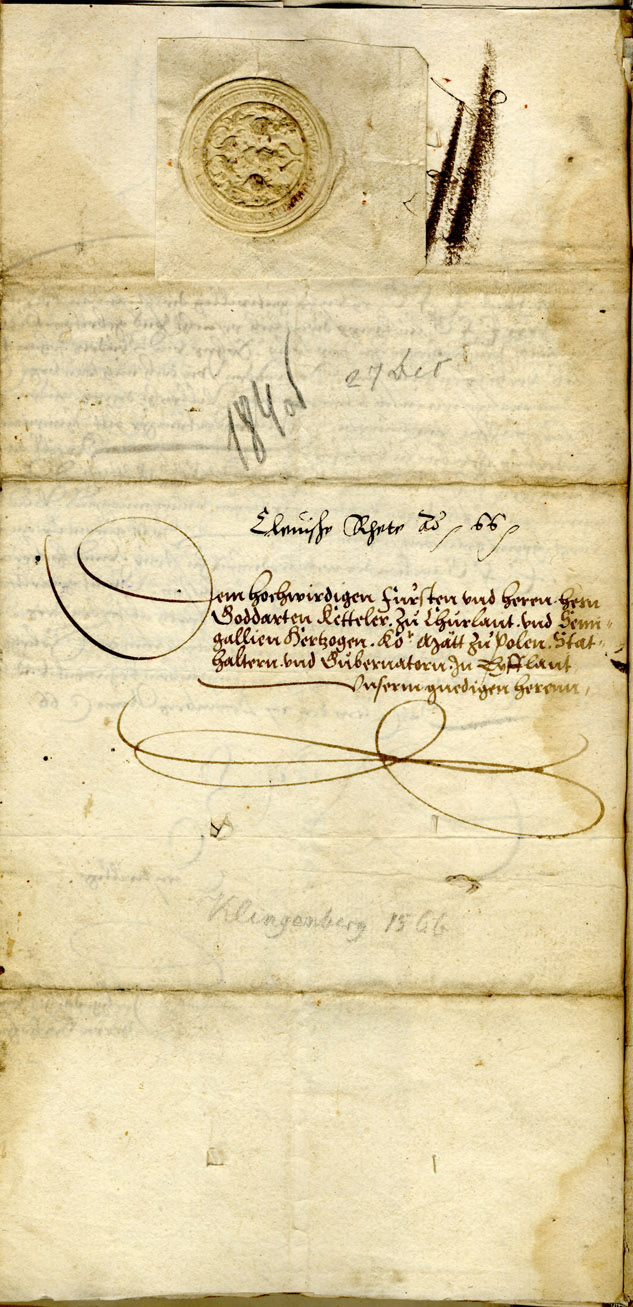 27 Dec
184
Clevische Rhete Aō 66
Dem hochwirdigen Fursten vnd heren hern
Goddarten Ketteler. zu Churlant vnd Semi-
gallien Hertzogen. Ko^r Matt zu Polen. Stat-
haltern vnd Gubernatorn In Lyfflant
Vnserm gnedigen herenn.
Klingenberg 1566